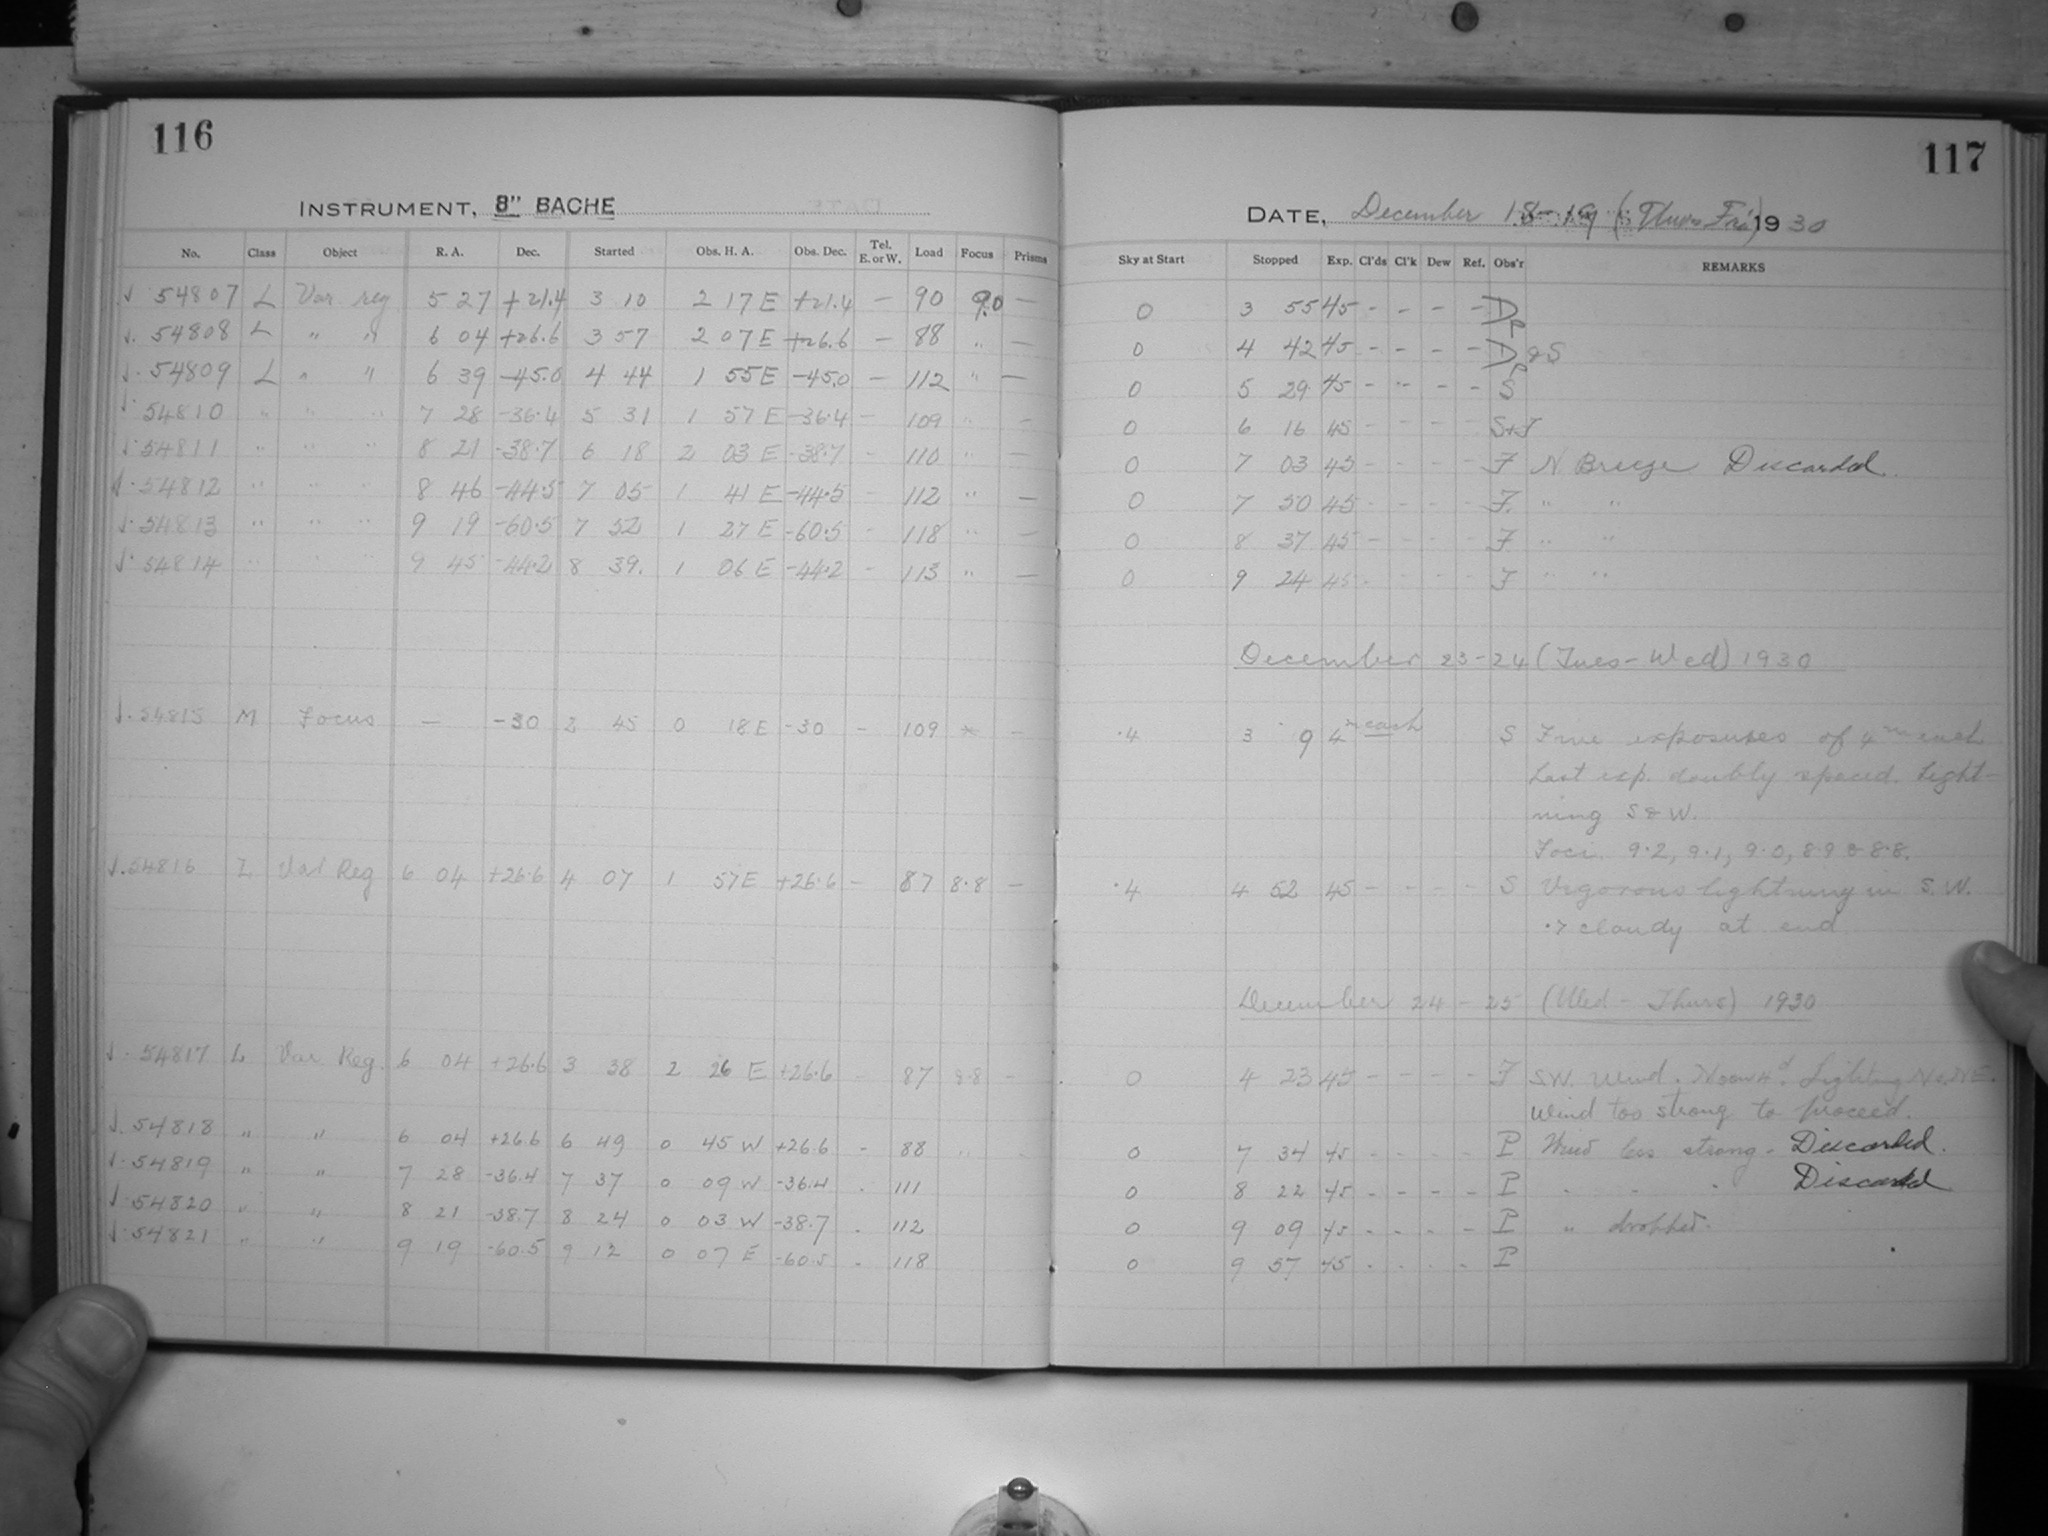 116
INSTRUMENT, 8" BACHE
No. Class Object R. A. Dec. Started Obs. H. A. Obs. Dec. Tel. E. or W. Load Focus Prisms
√ 54807 L Var reg 5 27 +21.4 3 10 2 17 E +21.4 — 90 9.0 —
√. 54808 L " " 6 04 +26.6 3 57 2 07 E +26.6 — 88 " —
√. 54809 L " " 6 39 -45.0 4 44 1 55 E -45.0 — 112 " —
√ 54810 " " " 7 28 -36.4 5 31 1 57 E -36.4 — 109 " —
√ 54811 " " " 8 21 -38.7 6 18 2 03 E -38.7 - 110 " —
√ 54812 " " " 8 46 -44.5 7 05 1 41 E -44.5 - 112 " —
√. 54813 " " " 9 19 -60.5 7 52 1 27 E -60.5 - 118 " —
√. 54814 " " " 9 45 -44.2 8 39. 1 06 E -44.2 - 113 " —
√. 54815 M Focus — -30 2 45 0 18 E -30 - 109 * -
√. 54816 L Var Reg 6 04 +26.6 4 07 1 57 E +26.6 - 87 8.8 —
√. 54817 L Var Reg. 6 04 +26.6 3 38 2 26 E +26.6 - 87 8.8 -
√. 54818 " " 6 04 +26.6 6 49 0 45 W +26.6 - 88 " -
√. 54819 " " 7 28 -36.4 7 37 0 09 W -36.4 - 111
√. 54820 " " 8 21 -38.7 8 24 0 03 W -38.7 - 112
√. 54821 " " 9 19 -60.5 9 12 0 07 E -60.5 - 118
117
DATE, December 18-19 (Thurs Fri) 1930
Sky at Start Stopped Exp. Cl'ds Cl'k Dew Ref. Obs'r REMARKS
0 3 55 45 - - - - Dp
0 4 42 45 - - - - Dp & S
0 5 29 45 - - - - S
0 6 16 45 - - - - S+F
0 7 03 45 - - - - F N Breeze Discarded.
0 7 50 45 - - - - F. " "
0 8 37 45 - - - - F " "
0 9 24 45 - - - - F " "
December 23-24 (Tues-Wed) 1930
.4 3 9 4m each S Five exposures of 4m each
Last exp. doubly spaced. Light-
ning S & W.
Foci. 9.2, 9.1, 9.0, 8.9 & 8.8.
.4 4 52 45 - - - - S Vigorous lightning in S.W.
.7 cloudy at end
December 24 - 25 (Wed - Thurs) 1930
0 4 23 45 - - - - F S.W. Wind. Lighting N & NE.
Wind too strong to proceed.
0 7 34 45 - - - - P Wind less strong - Discarded.
0 8 22 45 - - - - P " " " Discarded
0 9 09 45 - - - - P " dropped.
0 9 57 45 - - - - P